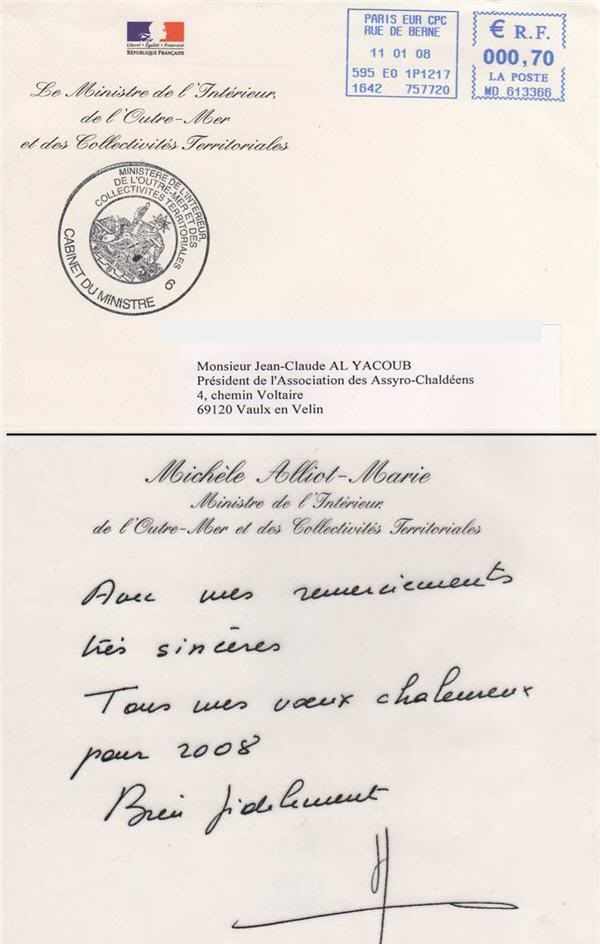 Liberté • Égalité • Fraternité
RÉPUBLIQUE FRANÇAISE
PARIS EUR CPC
RUE DE BERNE
11 01 08
595 E0 1P1217
1642 757720
€ R.F.
000,70
LA POSTE
MD 613366
Le Ministre de l'Intérieur,
de l'Outre-Mer
et des Collectivités Territoriales
MINISTERE DE L'INTERIEUR,
DE L'OUTRE-MER ET DES
COLLECTIVITÉS TERRITORIALES
6
CABINET DU MINISTRE
Monsieur Jean-Claude AL YACOUB
Président de l'Association des Assyro-Chaldéens
4, chemin Voltaire
69120 Vaulx en Velin
Michèle Alliot-Marie
Ministre de l'Intérieur,
de l'Outre-Mer et des Collectivités Territoriales
Avec mes remerciements
très sincères
Tous mes vœux chaleureux
pour 2008
Bien fidèlement